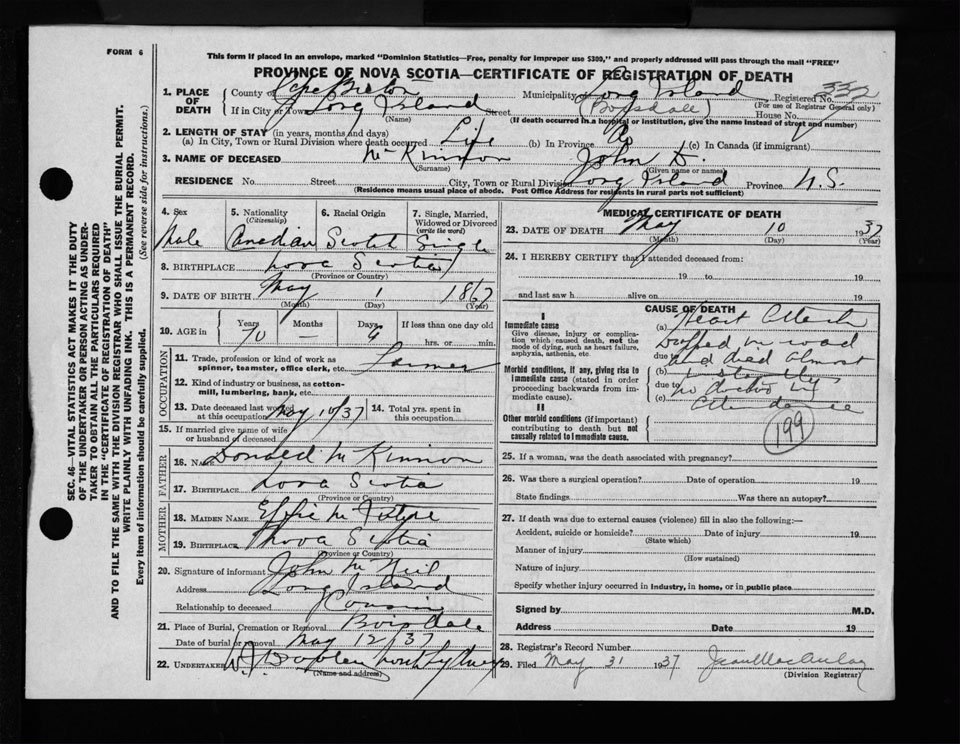 FORM 6
This form if placed in an envelope, marked "Dominion Statistics—Free, penalty for improper use $300," and properly addressed will pass through the mail "FREE"
PROVINCE OF NOVA SCOTIA—CERTIFICATE OF REGISTRATION OF DEATH
SEC. 46—VITAL STATISTICS ACT MAKES IT THE DUTY
OF THE UNDERTAKER OR PERSON ACTING AS UNDER-
TAKER TO OBTAIN ALL THE PARTICULARS REQUIRED
IN THE "CERTIFICATE OF REGISTRATION OF DEATH"
AND TO FILE THE SAME WITH THE DIVISION REGISTRAR WHO SHALL ISSUE THE BURIAL PERMIT.
WRITE PLAINLY WITH UNFADING INK. THIS IS A PERMANENT RECORD.
Every item of information should be carefully supplied. (See reverse side for instructions.)
1. PLACE OF DEATH County of Cape Breton Municipality Long Island Registered No. 332
(For use of Registrar General only)
If in City or Town Long Island Street (Boisdale) House No.
(Name) (If death occurred in a hospital or institution, give the name instead of street and number)
2. LENGTH OF STAY (in years, months and days)
(a) In City, Town or Rural Division where death occurred Life (b) In Province (c) In Canada (if immigrant)
3. NAME OF DECEASED McKinnon John D.
(Surname) (Given name or names)
RESIDENCE No. Street City, Town or Rural Division Long Island Province N.S.
(Residence means usual place of abode. Post Office Address for residents in rural parts not sufficient)
4. Sex 5. Nationality (Citizenship) 6. Racial Origin 7. Single, Married, Widowed or Divorced (write the word)
Male Canadian Scotch Single
8. BIRTHPLACE Nova Scotia
(Province or Country)
9. DATE OF BIRTH May 1 1867
(Month) (Day) (Year)
10. AGE in Years Months Days If less than one day
70 — 9 hrs. or min.
OCCUPATION
11. Trade, profession or kind of work as spinner, teamster, office clerk, etc. Farmer
12. Kind of industry or business, as cotton-mill, lumbering, bank, etc.
13. Date deceased last worked at this occupation May 10/37 14. Total yrs. spent in this occupation
15. If married give name of wife or husband of deceased
FATHER
16. Name Donald McKinnon
17. Birthplace Nova Scotia
(Province or Country)
MOTHER
18. Maiden Name Effie
19. Birthplace Nova Scotia
(Province or Country)
20. Signature of informant John McNeil
Address Long Island
Relationship to deceased Cousin
21. Place of Burial, Cremation or Removal Boisdale
Date of burial or removal May 12/37
22. Undertaker North Sydney
(Name and address)
MEDICAL CERTIFICATE OF DEATH
23. DATE OF DEATH May 10 1937
(Month) (Day) (Year)
24. I HEREBY CERTIFY that I attended deceased from:
19 to 19
and last saw h alive on 19
CAUSE OF DEATH
I
Immediate cause
Give disease, injury or complication which caused death, not the mode of dying, such as heart failure, asphyxia, asthenia, etc.
Morbid conditions, if any, giving rise to immediate cause (stated in order proceeding backwards from immediate cause).
II
Other morbid conditions (if important) contributing to death but not causally related to immediate cause.
(a) Heart Attack
Dropped in road
due to and died almost
(b) Instantly
due to no doctor in
(c) Attendance
199
25. If a woman, was the death associated with pregnancy?
26. Was there a surgical operation? Date of operation 19
State findings Was there an autopsy?
27. If death was due to external causes (violence) fill in also the following:—
Accident, suicide or homicide? Date of injury 19
(State which)
Manner of injury
(How sustained)
Nature of injury
Specify whether injury occurred in industry, in home, or in public place
Signed by M.D.
Address Date 19
28. Registrar's Record Number
29. Filed May 31 1937 Jean MacAulay
(Division Registrar)